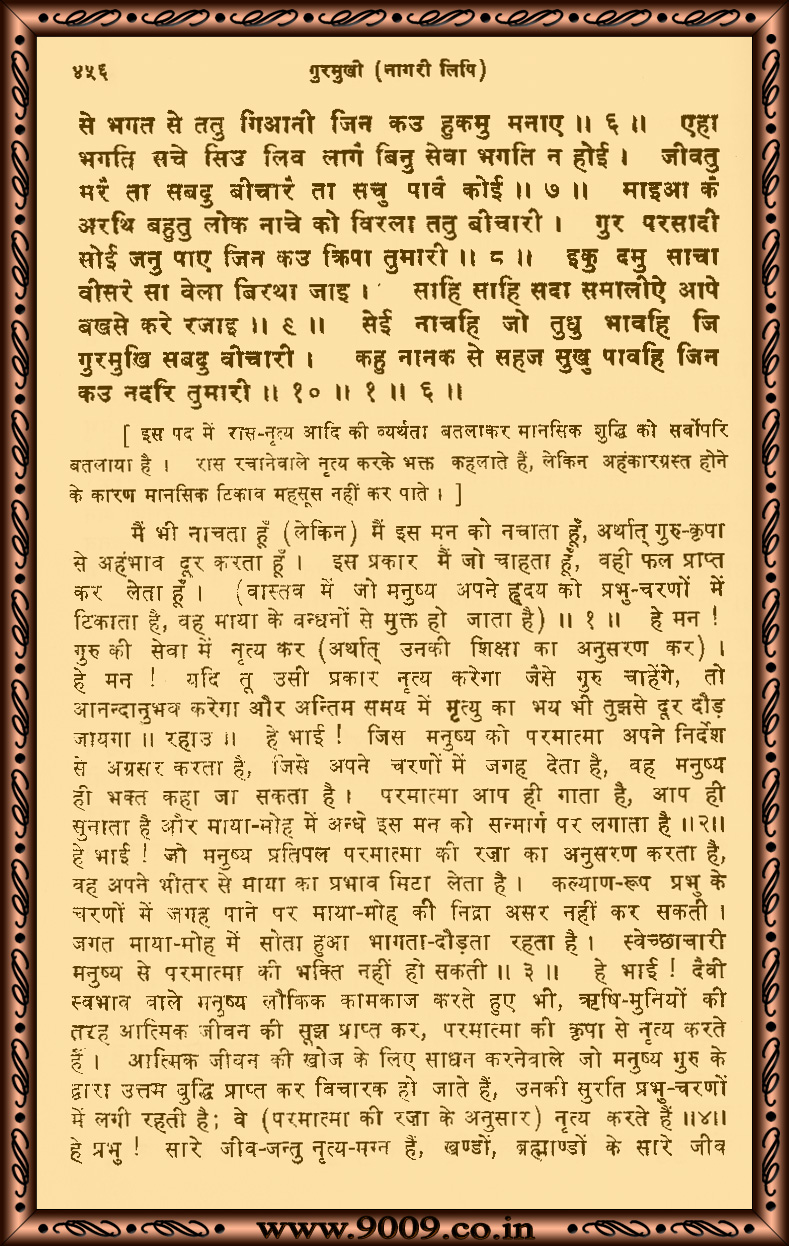 ४५६ गुरमुखी (नागरी लिपि)
से भगत से ततु गिआनी जिन कउ हुकमु मनाए ॥ ६ ॥ एहा
भगति सचे सिउ लिव लागै बिनु सेवा भगति न होई । जीवतु
मरै ता सबदु बीचारै ता सचु पावै कोई ॥ ७ ॥ माइआ कै
अरथि बहुतु लोक नाचे को विरला ततु बीचारी । गुर परसादी
सोई जनु पाए जिन कउ क्रिपा तुमारी ॥ ८ ॥ इकु दमु साचा
वीसरै सा वेला बिरथा जाइ । साहि साहि सदा समालीऐ आपे
बखसे करे रजाइ ॥ ९ ॥ सेई नाचहि जो तुधु भावहि जि
गुरमुखि सबदु वीचारी । कहु नानक से सहज सुखु पावहि जिन
कउ नदरि तुमारी ॥ १० ॥ १ ॥ ६ ॥
[ इस पद में रास-नृत्य आदि की व्यर्थता बतलाकर मानसिक शुद्धि को सर्वोपरि
बतलाया है । रास रचानेवाले नृत्य करके भक्त कहलाते हैं, लेकिन अहंकारग्रस्त होने
के कारण मानसिक टिकाव महसूस नहीं कर पाते । ]
मैं भी नाचता हूँ (लेकिन) मैं इस मन को नचाता हूँ, अर्थात् गुरु-कृपा
से अहंभाव दूर करता हूँ । इस प्रकार मैं जो चाहता हूँ, वही फल प्राप्त
कर लेता हूँ । (वास्तव में जो मनुष्य अपने हृदय को प्रभु-चरणों में
टिकाता है, वह माया के बन्धनों से मुक्त हो जाता है) ॥ १ ॥ हे मन !
गुरु की सेवा में नृत्य कर (अर्थात् उनकी शिक्षा का अनुसरण कर) ।
हे मन ! यदि तू उसी प्रकार नृत्य करेगा जैसे गुरु चाहेंगे, तो
आनन्दानुभव करेगा और अन्तिम समय में मृत्यु का भय भी तुझसे दूर दौड़
जायगा ॥ रहाउ ॥ हे भाई ! जिस मनुष्य को परमात्मा अपने निर्देश
से अग्रसर करता है, जिसे अपने चरणों में जगह देता है, वह मनुष्य
ही भक्त कहा जा सकता है । परमात्मा आप ही गाता है, आप ही
सुनाता है और माया-मोह में अन्धे इस मन को सन्मार्ग पर लगाता है ॥२॥
हे भाई ! जो मनुष्य प्रतिपल परमात्मा की रज़ा का अनुसरण करता है,
वह अपने भीतर से माया का प्रभाव मिटा लेता है । कल्याण-रूप प्रभु के
चरणों में जगह पाने पर माया-मोह की निद्रा असर नहीं कर सकती ।
जगत माया-मोह में सोता हुआ भागता-दौड़ता रहता है । स्वेच्छाचारी
मनुष्य से परमात्मा की भक्ति नहीं हो सकती ॥ ३ ॥ हे भाई ! दैवी
स्वभाव वाले मनुष्य लौकिक कामकाज करते हुए भी, ऋषि-मुनियों की
तरह आत्मिक जीवन की सूझ प्राप्त कर, परमात्मा की कृपा से नृत्य करते
हैं । आत्मिक जीवन की खोज के लिए साधन करनेवाले जो मनुष्य गुरु के
द्वारा उत्तम बुद्धि प्राप्त कर विचारक हो जाते हैं, उनकी सुरति प्रभु-चरणों
में लगी रहती है; वे (परमात्मा की रज़ा के अनुसार) नृत्य करते हैं ॥४॥
हे प्रभु ! सारे जीव-जन्तु नृत्य-मग्न हैं, खण्डों, ब्रह्माण्डों के सारे जीव
www.9009.co.in